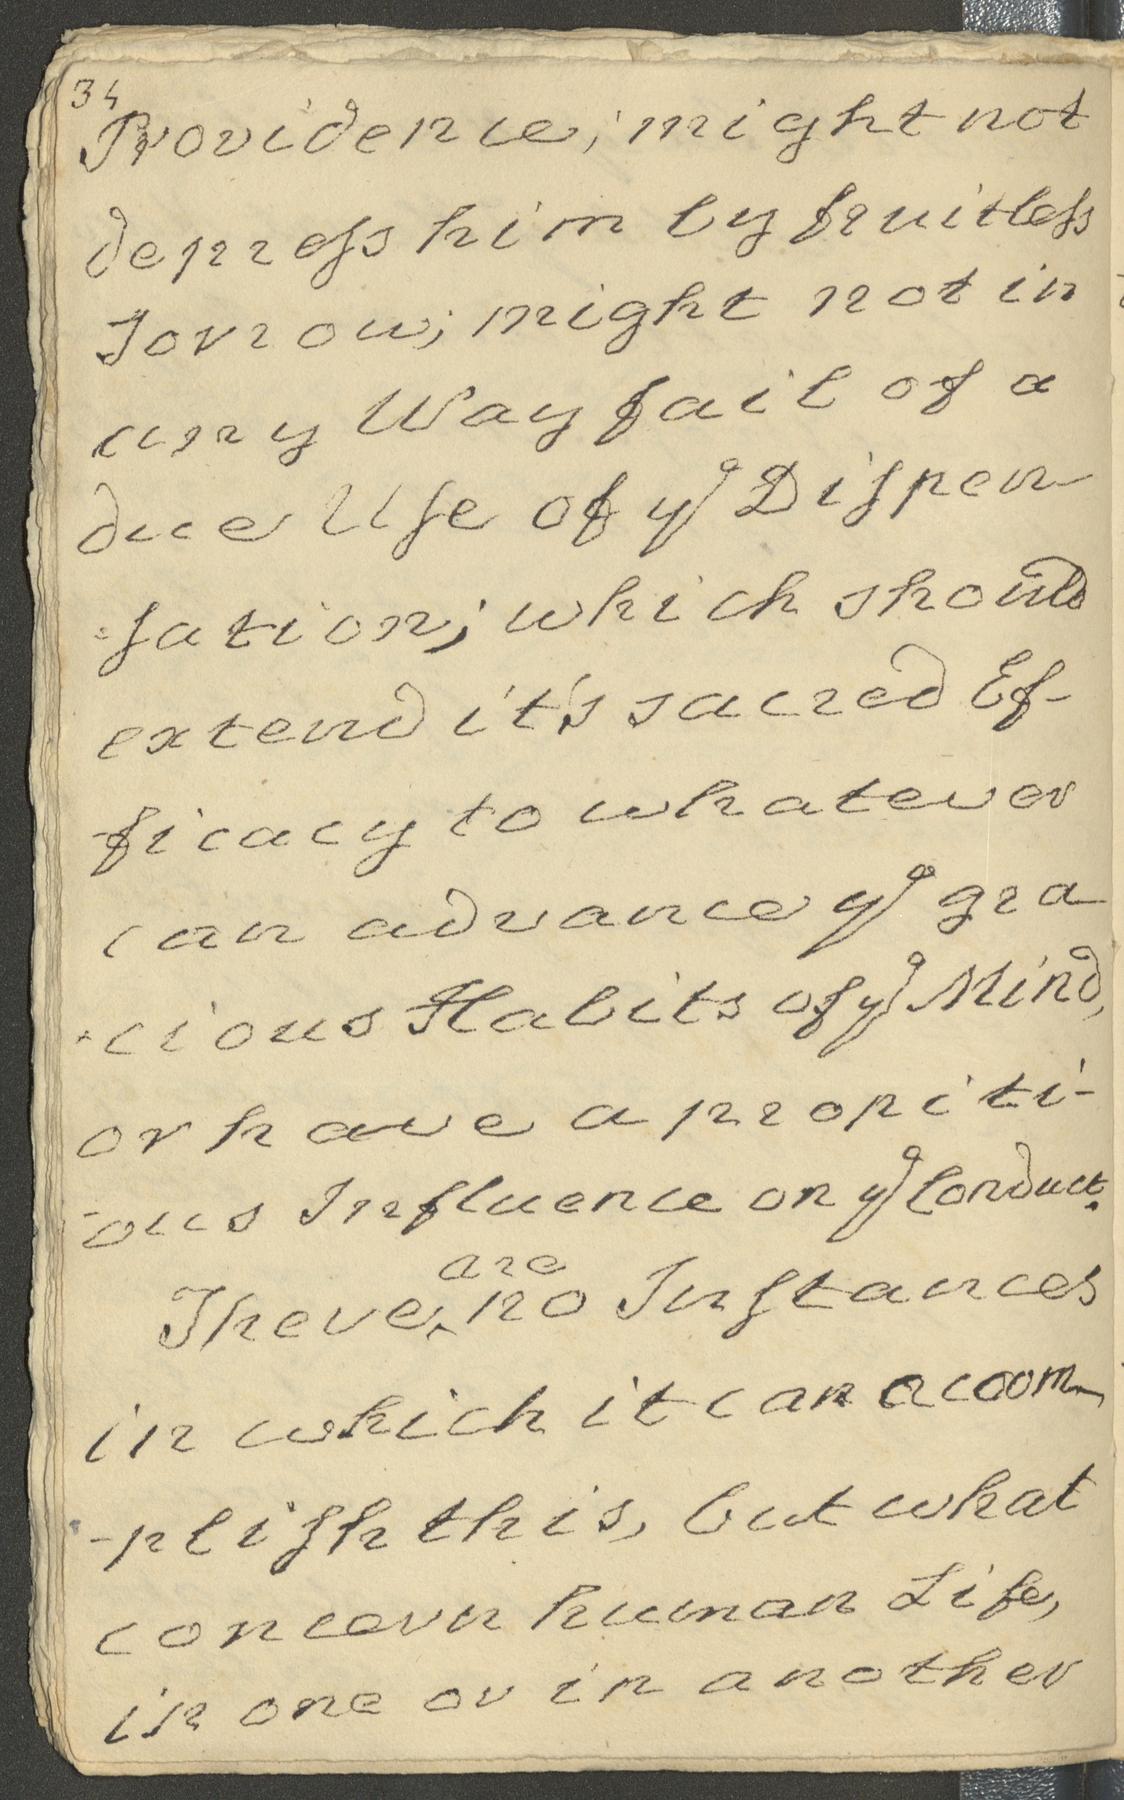 34
Providence; might not
depreſs him by fruitleſs
Sorrow; might not in
any Way fail of a
due Uſe of yᵉ Diſpen-
-ſation; which should
extend it's sacred Ef-
-ficacy to whatever
can advance yᵉ gra
-cious Habits of yᵉ Mind,
or have a propiti-
-ous Influence on yᵉ Conduct.
are
There ‸ no Inſtances
in which it can accom-
-pliſh this, but what
concern human Life,
in one or in another